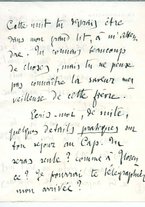 Cette nuit tu devrais être
dans mon grand lit, à m'atten-
dre. Tu connais beaucoup
de choses, mais tu ne peux
pas connaître la saveur mer-
veilleuse de cette fièvre.
Écris-moi, de suite,
quelques détails pratiques sur
ton séjour au Cap. Tu
seras seule ? comme à
ce ? Je pourrai te télégraphier
mon arrivée ?